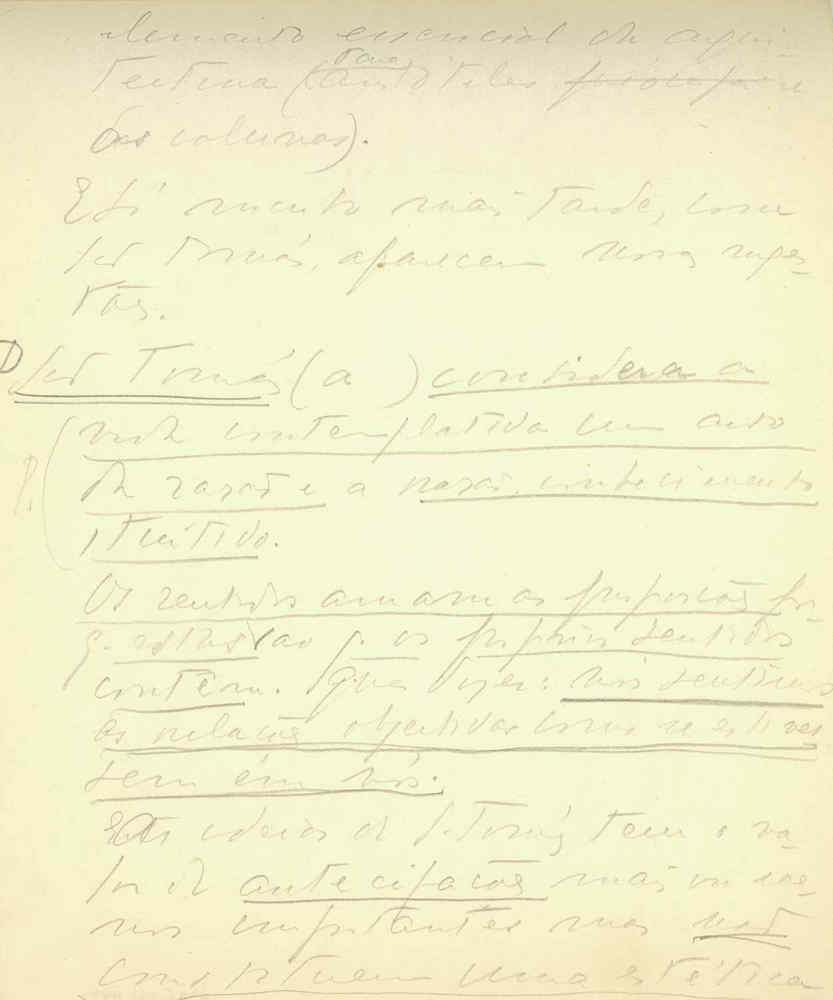 elemento essencial da arqui-
tectura (para Aristóteles
das colunas).
E só muito mais tarde, com
São Tomás, aparecem novas suges-
tões.
São Tomás (a ) considera a
vida contemplativa um acto
da razão e a razão, conhecimento
ituitivo.
Os sentidos amam as proporções por
q. estas são p. os próprios sentidos
contêm. Quer dizer: nós sentimos
as relações objectivas como se estives
sem em nós.
Estas ideias de S. Tomás tem o va-
lor de antecipações mais ou me-
nos importantes mas não
constituem uma estética